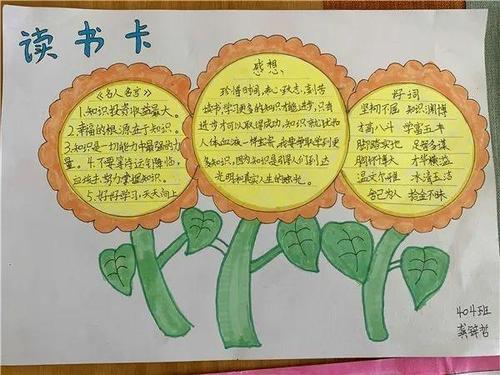 读书卡
《名人名言》
1.知识投资收益最大。
2.幸福的根源在于知识。
3.知识是一切能力中最强的力
量。4.不要等待运气降临,
应该去努力掌握知识。
5.好好学习,天天向上
感想
珍惜时间,
读书,学习更多的知识才能进步,只有
进步才可以取得成功,知识就犹如
人体血液一样宝贵,我要学取学到更
多知识,因为知识是引导人们到达
光明和真实人生的烛光。
好词
坚韧不屈 知识渊博
才高八斗 学富五车
脚踏实地 足智多谋
胸怀博大 才华横溢
温文尔雅 冰清玉洁
舍己为人 拾金不昧
404班
龚